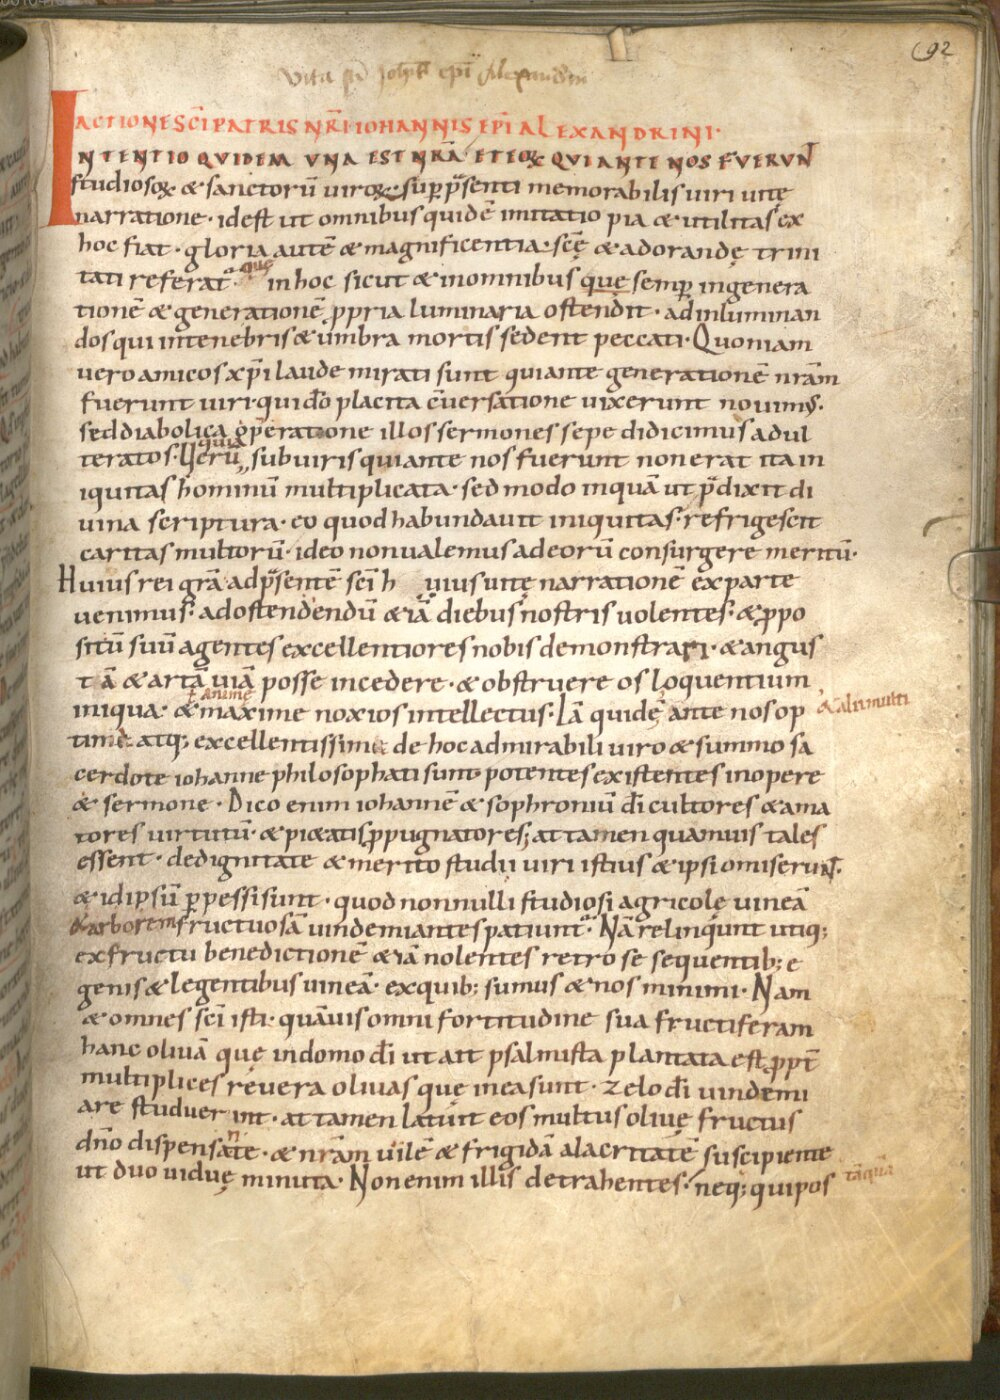 92
Vita sci Joħis epi Alexandrini
ACTIONE SCI PATRIS NRI IOHANNIS EPI ALEXANDRINI·
INTENTIO QVIDEM VNA EST NRA ET EOꝝ QVI ANTE NOS FVERVNT
studiosoꝝ & sanctorū viroꝝ· sup p̄senti memorabilis viri vitę
narratione· idest ut omnibus quidē imitatio pia & utilitas ex
hoc fiat· gloria autē & magnificentia· scę & adorandę trini
tati referat̄· quę in hoc sicut & inomnibus quę semp̱ ingenera
tionē & generationē ꝓpria luminaria ostendit· adinluminan
dos qui intenebris & umbra mortis sedent peccati· Quoniam
vero amicos xp̄i laude mirati sunt qui ante generationē nrām
fuerunt viri· qui dō placita c̄versatione vixerunt novimus·
sed diabolica oꝑeratione illos sermones sepe didicimus adul
teratos· Verū quia sub viris qui ante nos fuerunt non erat ita in
iquitas hominū multiplicata· sed modo inquā ut p̄dixit di
uina scriptura· eo quod habundavit iniquitas· refrigescit
caritas multorū· ideo non ualemus ad eorū consurgere meritū·
Huius rei grā ad p̄sentē sci h uius vitę narrationē ex parte
venimus· ad ostendendū & iā diebus nostris volentes· & ꝓpo
sitū suū agentes excellentiores nobis demonstrari· & angus
tā & artā viā posse incedere· & obstruere os loquentium
ł animę
iniqua· & maxime noxios intellectus· Iā quidē ante nos op & alii multi
time atq; excellentissime de hoc admirabili viro & summo sa
cerdote iohanne philosophati sunt potentes existentes in opere
& sermone· Dico enim iohannē & sophroniū dī cultores & ama
tores virtutū· & pi&atis ꝓpugnatores; attamen quamvis tales
essent· de dignitate & merito studii viri istius & ipsi omiserunt·
& id ipsū ꝑpessi sunt· quod nonnulli studiosi agricolę vineā
& arborem fructuosā vindemiantes patiunt̄· Nā relinqūnt utiq;
ex fructu benedictionē & iā nolentes retro se sequentib; e
genis & legentibus vineā· ex quib; sumus & nos minimi· Nam
& omnes sci isti· quāvis omni fortitudine sua fructiferam
hanc olivā quę in domo dī ut ait psalmista plantata est ꝓpt̄
multiplices revera olivas quę in ea sunt· zelo dī vindemi
are studuerint· attamen latuit eos multus olivę fructus
dn̄o dispensante· & nrām vilē & frigidā alacritatē suscipiente
ut duo viduę minuta· Non enim illis detrahentes· neq; qui pos tāquā